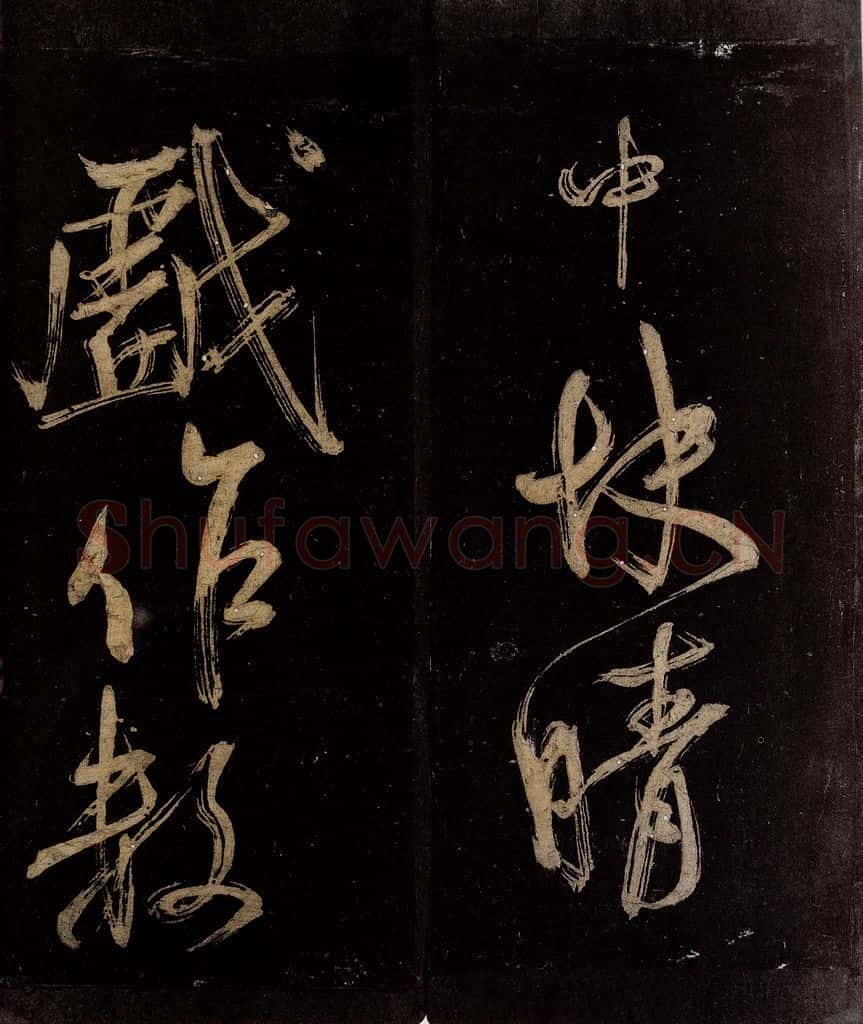 中快晴
戲作數
Shufawang.CN